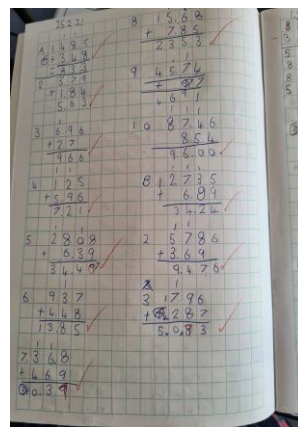 25.2.21
1 485
+ 348
833
2 379
+ 1.84
5.63
3 696
+ 27
966
4 125
+ 596
721
5 2808
+ 639
34.47
6 937
+ 448
13.85
7 36.8
+ 469
0.3
8 15.68
+ 7.85
23.53
9 4574
+
469
10 87.46
8.54
96.00
B 1 2735
+ 6.89
34.24
2 5786
+ 3.69
9.476
3 1796
+ 3.287
5.083